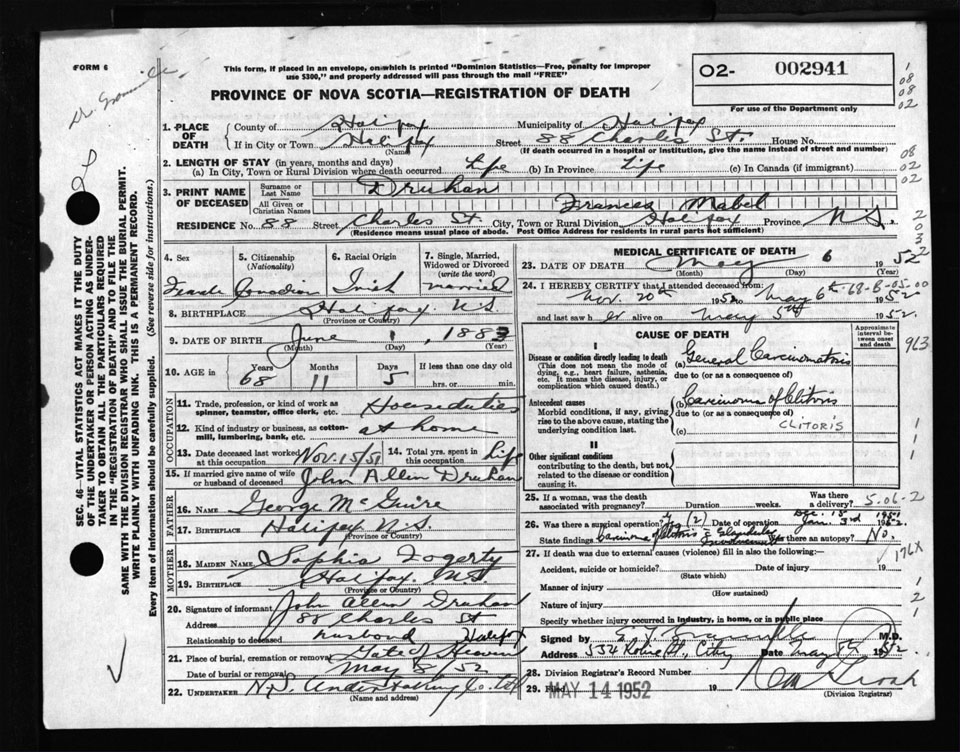 FORM 6
This form, if placed in an envelope, on which is printed "Dominion Statistics—Free, penalty for improper
use $300," and properly addressed will pass through the mail "FREE"
O2- 002941
For use of the Department only
PROVINCE OF NOVA SCOTIA—REGISTRATION OF DEATH
1. PLACE OF DEATH County of Halifax Municipality of Halifax
If in City or Town Halifax (Name) Street 88 Charles St. House No.
(If death occurred in a hospital or institution, give the name instead of street and number)
2. LENGTH OF STAY (in years, months and days)
(a) In City, Town or Rural Division where death occurred Life (b) In Province Life (c) In Canada (if immigrant)
3. PRINT NAME OF DECEASED Surname or Last Name Druhan
All Given or Christian Names Frances Mabel
RESIDENCE No. 88 Street Charles St. City, Town or Rural Division Halifax Province N.S.
(Residence means usual place of abode. Post Office Address for residents in rural parts not sufficient)
4. Sex Female
5. Citizenship (Nationality) Canadian
6. Racial Origin Irish
7. Single, Married, Widowed or Divorced (write the word) married
8. BIRTHPLACE Halifax, N.S.
(Province or Country)
9. DATE OF BIRTH June 1, 1883
(Month) (Day) (Year)
10. AGE IN Years 68 Months 11 Days 5 If less than one day old hrs. or min.
OCCUPATION
11. Trade, profession, or kind of work as spinner, teamster, office clerk, etc. Houseduties
12. Kind of industry or business, as cotton-mill, lumbering, bank, etc. at home
13. Date deceased last worked at this occupation Nov. 15/51 14. Total yrs. spent in this occupation Life
15. If married give name of wife or husband of deceased John Allen Druhan
FATHER
16. NAME George McGuire
17. BIRTHPLACE Halifax N.S.
(Province or Country)
MOTHER
18. MAIDEN NAME Sophia Fogerty
19. BIRTHPLACE Halifax, N.S.
(Province or Country)
20. Signature of informant John Allen Druhan
Address 88 Charles St Halifax
Relationship to deceased husband
21. Place of burial, cremation or removal Gate of Heaven
Date of burial or removal May 8/52
22. UNDERTAKER N.S. Undertaking Co. Ltd
(Name and address)
MEDICAL CERTIFICATE OF DEATH
23. DATE OF DEATH May 6 1952
(Month) (Day) (Year)
24. I HEREBY CERTIFY that I attended deceased from
Nov. 20th 195 to May 6th 1952
and last saw her alive on May 5th 1952.
CAUSE OF DEATH
Approximate interval between onset and death
I
Disease or condition directly leading to death
(This does not mean the mode of dying, e.g., heart failure, asthenia, etc. It means the disease, injury, or complication which caused death.)
(a) General Carcinomatosis
due to (or as a consequence of)
Antecedent causes
Morbid conditions, if any, giving rise to the above cause, stating the underlying condition last.
(b) Carcinoma of Clitoris
due to (or as a consequence of)
CLITORIS
(c)
II
Other significant conditions
contributing to the death, but not related to the disease or condition causing it.
25. If a woman, was the death associated with pregnancy? Duration weeks Was there a delivery?
26. Was there a surgical operation? Yes (2) Date of operation Dec. 15 1951 Jan. 3rd 1952.
State findings Carcinoma of Clitoris c Glandular Involvement Was there an autopsy? No.
27. If death was due to external causes (violence) fill in also the following:—
Accident, suicide or homicide? Date of injury 19
(State which)
Manner of injury
(How sustained)
Nature of injury
Specify whether injury occurred in industry, in home, or in public place
Signed by M.D.
Address City Date May 1952
28. Division Registrar's Record Number
29. Filed MAY 14 1952 19
(Division Registrar)
SEC. 46—VITAL STATISTICS ACT MAKES IT THE DUTY
OF THE UNDERTAKER OR PERSON ACTING AS UNDER-
TAKER TO OBTAIN ALL THE PARTICULARS REQUIRED
IN THE "REGISTRATION OF DEATH" AND TO FILE THE
SAME WITH THE DIVISION REGISTRAR WHO SHALL ISSUE THE BURIAL PERMIT.
WRITE PLAINLY WITH UNFADING INK. THIS IS A PERMANENT RECORD.
Every item of information should be carefully supplied. (See reverse side for instructions.)
1
08
08
02
08
02
02
2
0
3
2
963
1
1
1
5.06-2
176X
1
2
1